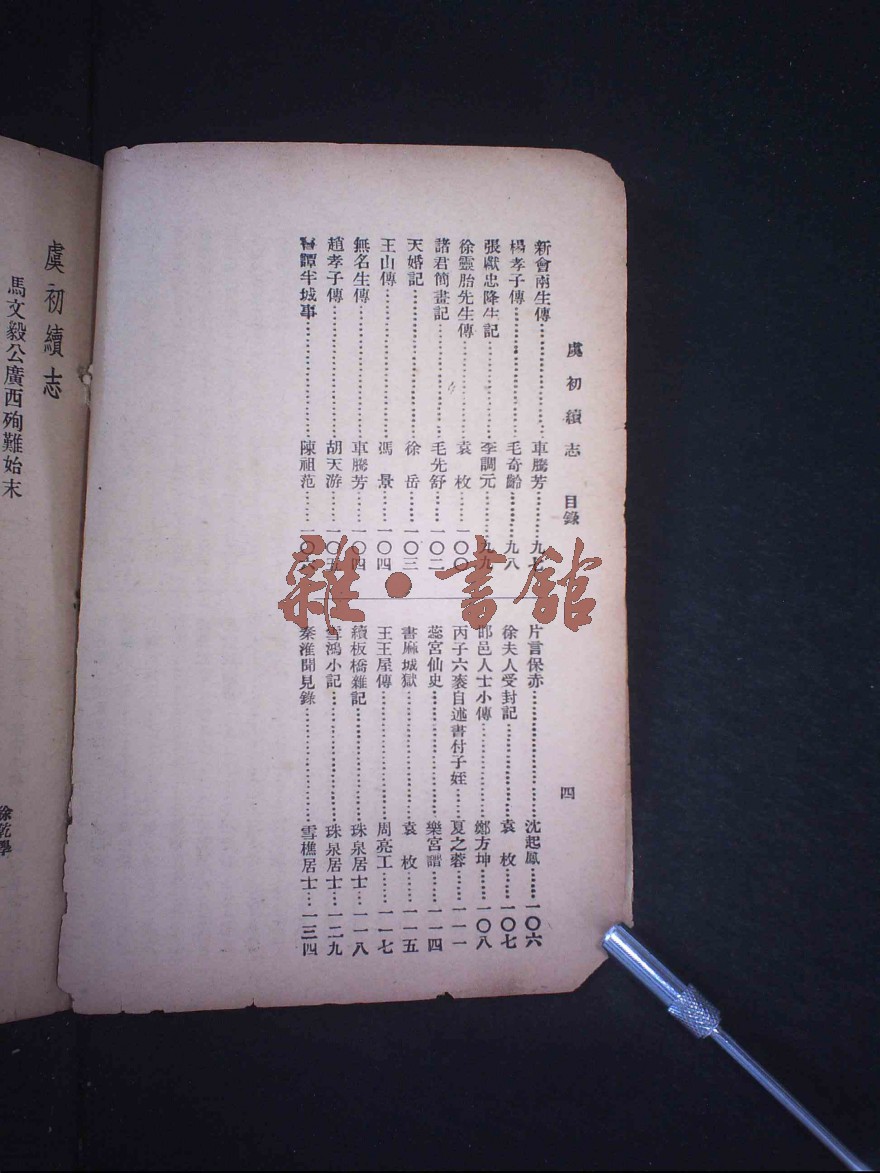 虞初續志　目錄　四
新會南生傳……車騰芳……九七
楊孝子傳……毛奇齡……九八
張獻忠降生記……李調元……九九
徐靈胎先生傳……袁　枚……一〇〇
諸君簡畫記……毛先舒……一〇二
天婚記……徐　岳……一〇三
王山傳……馮　景……一〇四
無名生傳……車騰芳……一〇四
趙孝子傳……胡天游……一〇五
譚半城事……陳祖范……一〇六
片言保赤……沈起鳳……一〇六
徐夫人受封記……袁　枚……一〇七
邯邑人士小傳……鄭方坤……一〇八
丙子六袠自述書付子姪……夏之蓉……一一一
蕊宮仙史……樂宮譜……一一四
書麻城獄……袁　枚……一一五
王王屋傳……周亮工……一一七
續板橋雜記……珠泉居士……一一八
雪鴻小記……珠泉居士……一二九
秦淮聞見錄……雪樵居士……一三四
虞初續志
馬文毅公廣西殉難始末
徐乾學
雜·書館